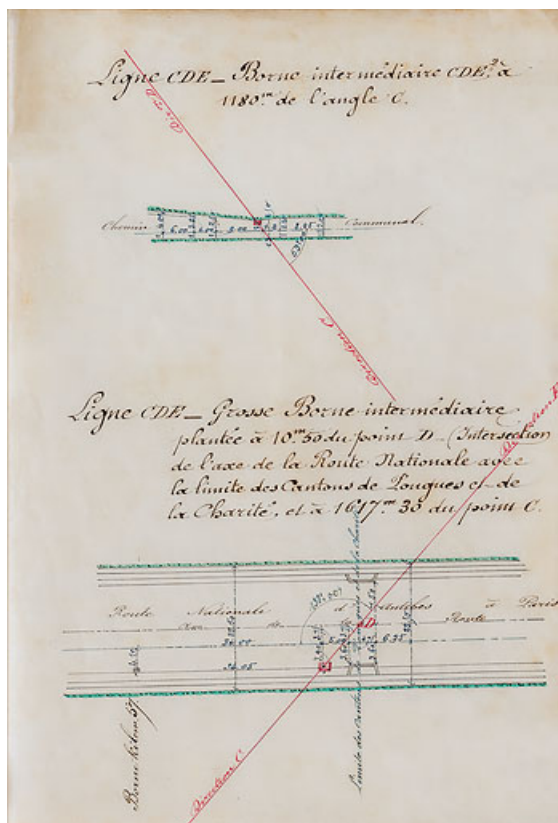 Ligne CDE _ Borne intermédiaire CDE.² à
1180.ᵐ de l'angle C.
Chemin
Communal.
6.00
2.00
Direction C
Ligne CDE _ Grosse Borne intermédiaire
plantée à 10.ᵐ50 du point D _ (Intersection
de l'axe de la Route Nationale avec
la limite des Cantons de Pougues et de
la Charité, et à 1617.ᵐ 30 du point C.
Route Nationale d'Antibes à Paris
Axe de la Route
D
5.00
6.35
36.00
36.05
Borne kilom. 57
Limite des cantons de Pougues et de la Charité
Direction C